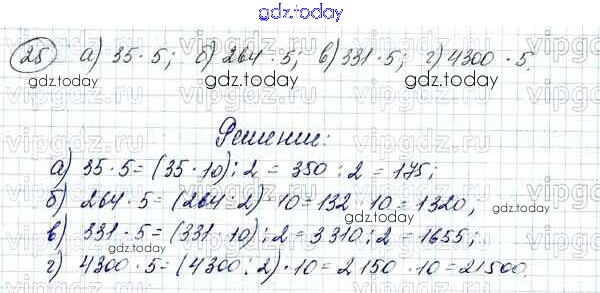 gdz.today
25 а) 35 · 5; б) 264 · 5; в) 331 · 5; г) 4300 · 5.
gdz.today gdz.today gdz.today
Решение:
а) 35 · 5 = (35 · 10) : 2 = 350 : 2 = 175;
gdz.today
б) 264 · 5 = (264 : 2) · 10 = 132 · 10 = 1320;
gdz.today
в) 331 · 5 = (331 · 10) : 2 = 3310 : 2 = 1655;
gdz.today
г) 4300 · 5 = (4300 : 2) · 10 = 2150 · 10 = 21500.
gdz.today